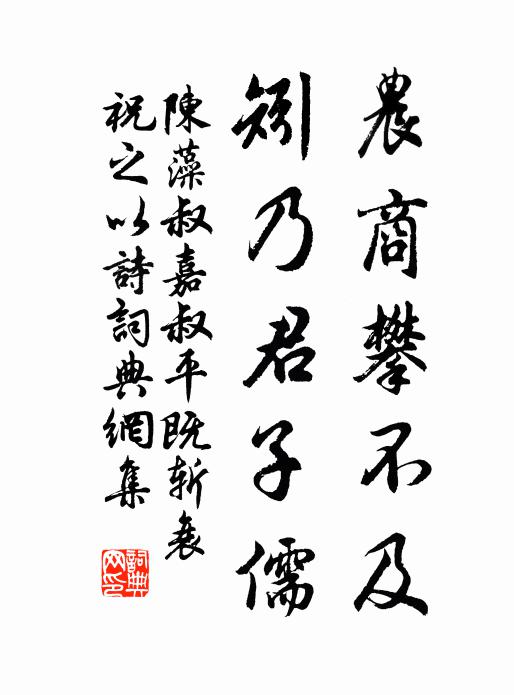 農商攀不及
矧乃君子儒
陳藻叔嘉叔平既斬衰
祝之以詩詞典網集
詞典網印